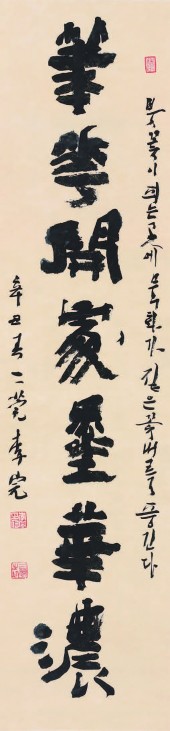 붓꽃이 피는 곳에 묵화가 짙은 꽃내음을 풍긴다
筆花開處墨華濃
辛丑春